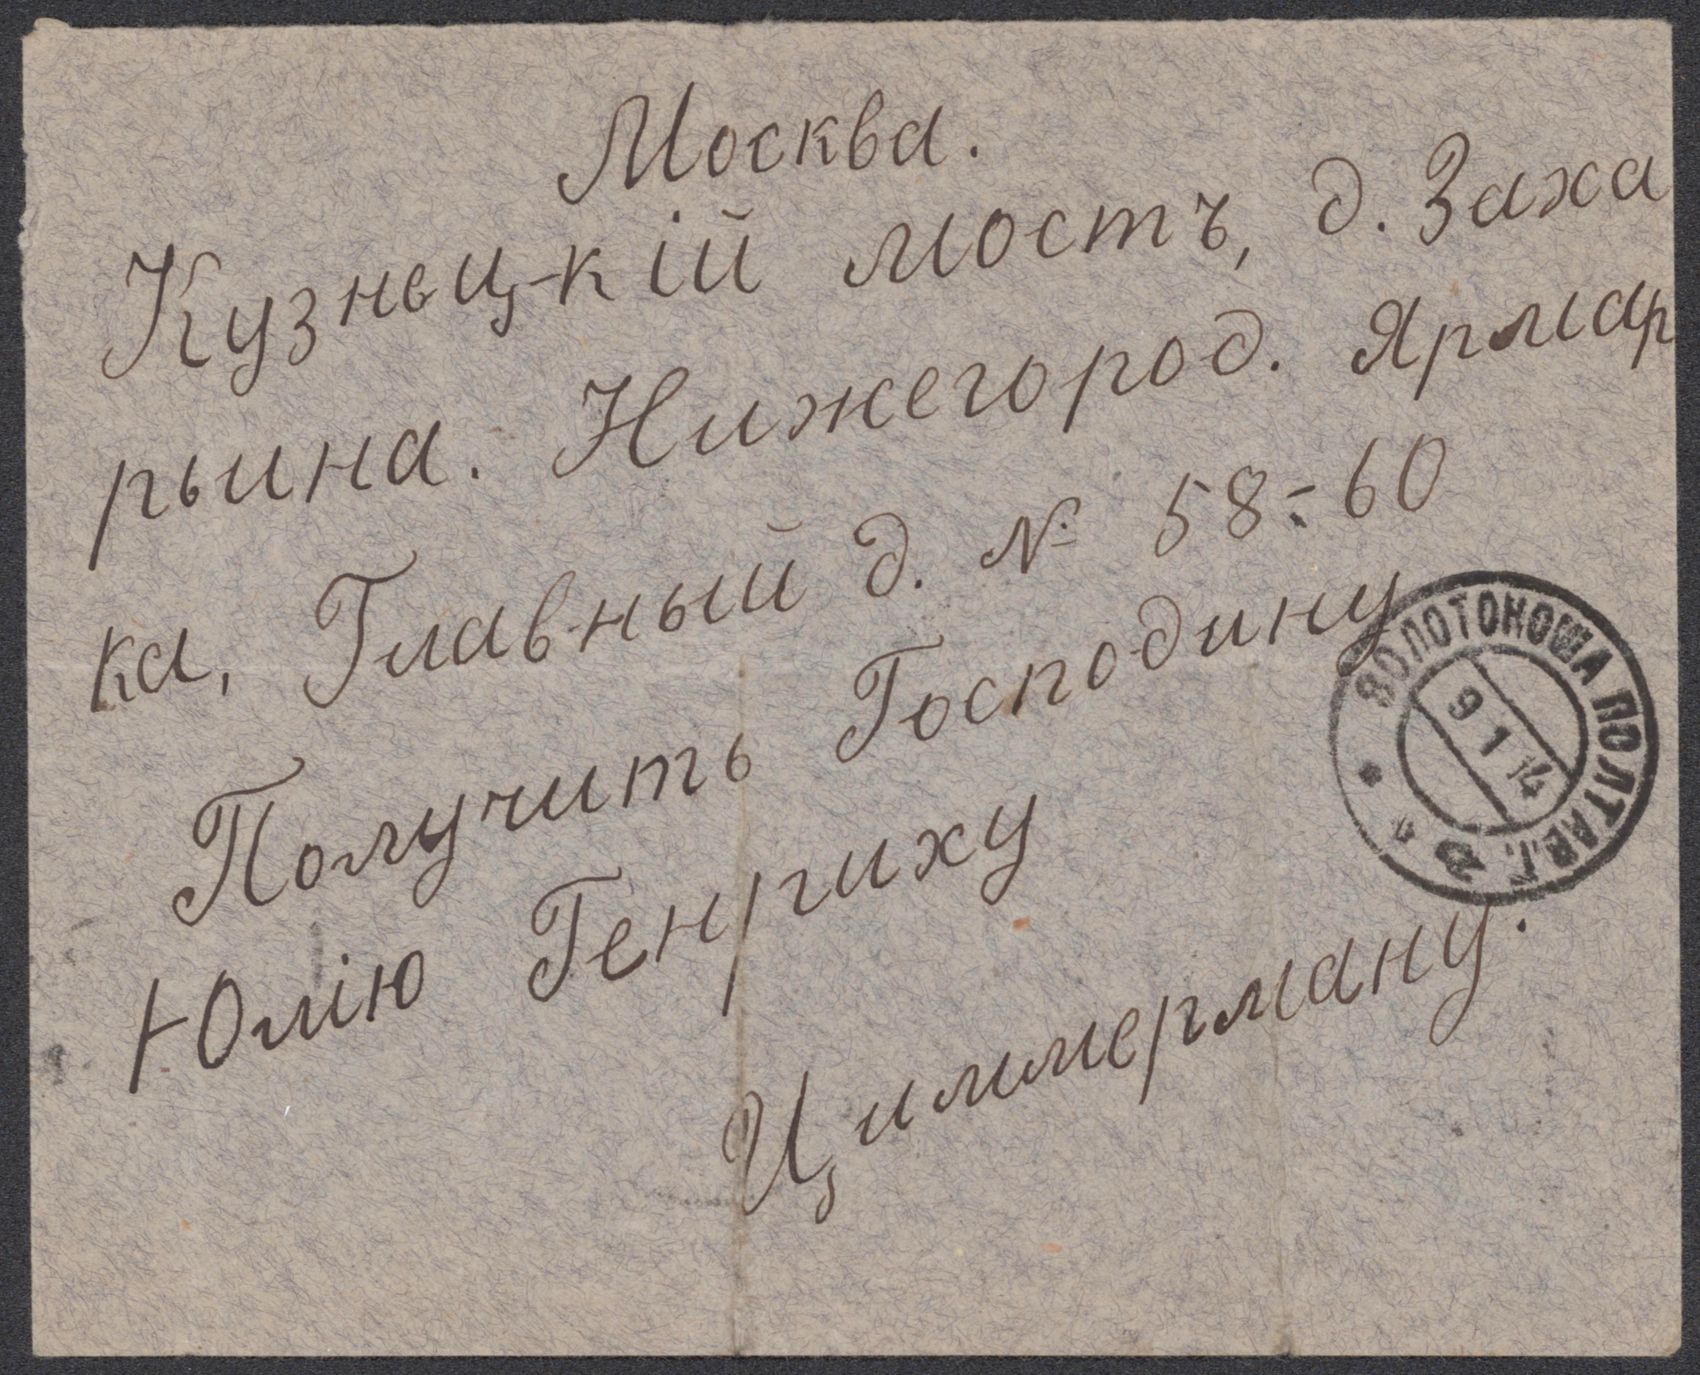 Москва.
Кузнецкій мостъ, д. Заха
рьина. Нижегород. Ярмар
ка, Главный д. № 58-60
Получить Господину
Юлію Генриху
Циммерману.
ЗОЛОТОНОША ПОЛТАВ.Г.
9 1 14